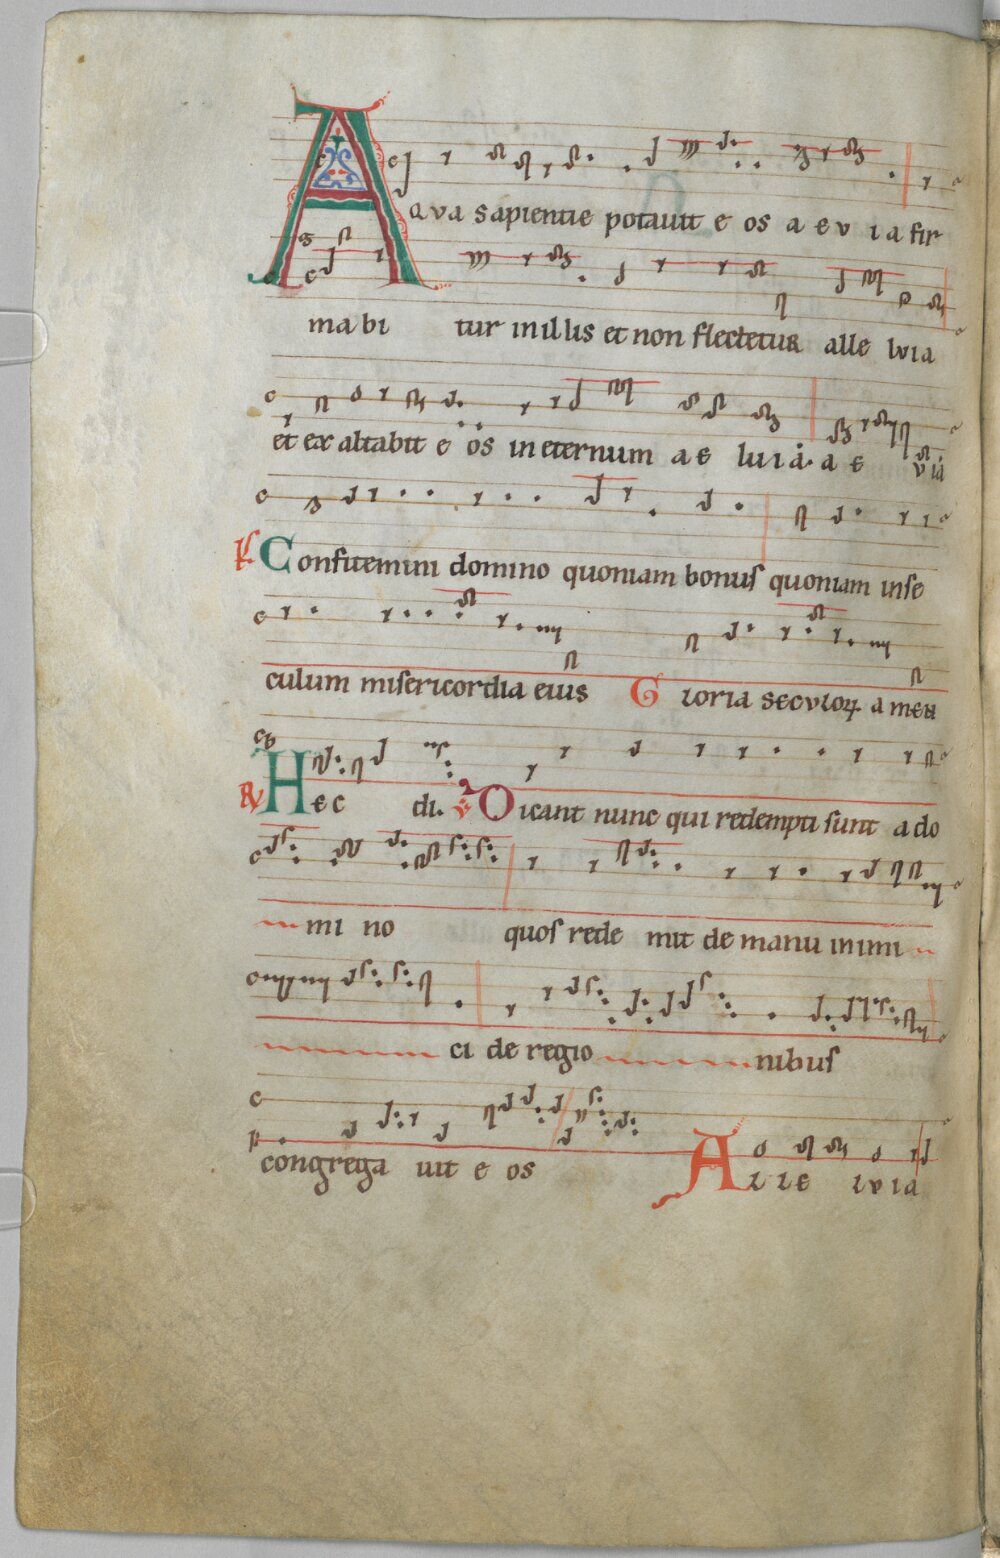 AQVA sapientie potauit e os a e v ia fir
ma bi tur in illis et non flectetur alle lvia
et ex altabit e os in eternum a e luia. a e via
Confitemini domino quoniam bonus quoniam inse
culum misericordia eius Gloria seculoꝝ amen
Hec di. Dicant nunc qui redempti sunt a do
mi no quos rede mit de manu inimi
ci de regio nibus
congrega uit e os Alle lvia